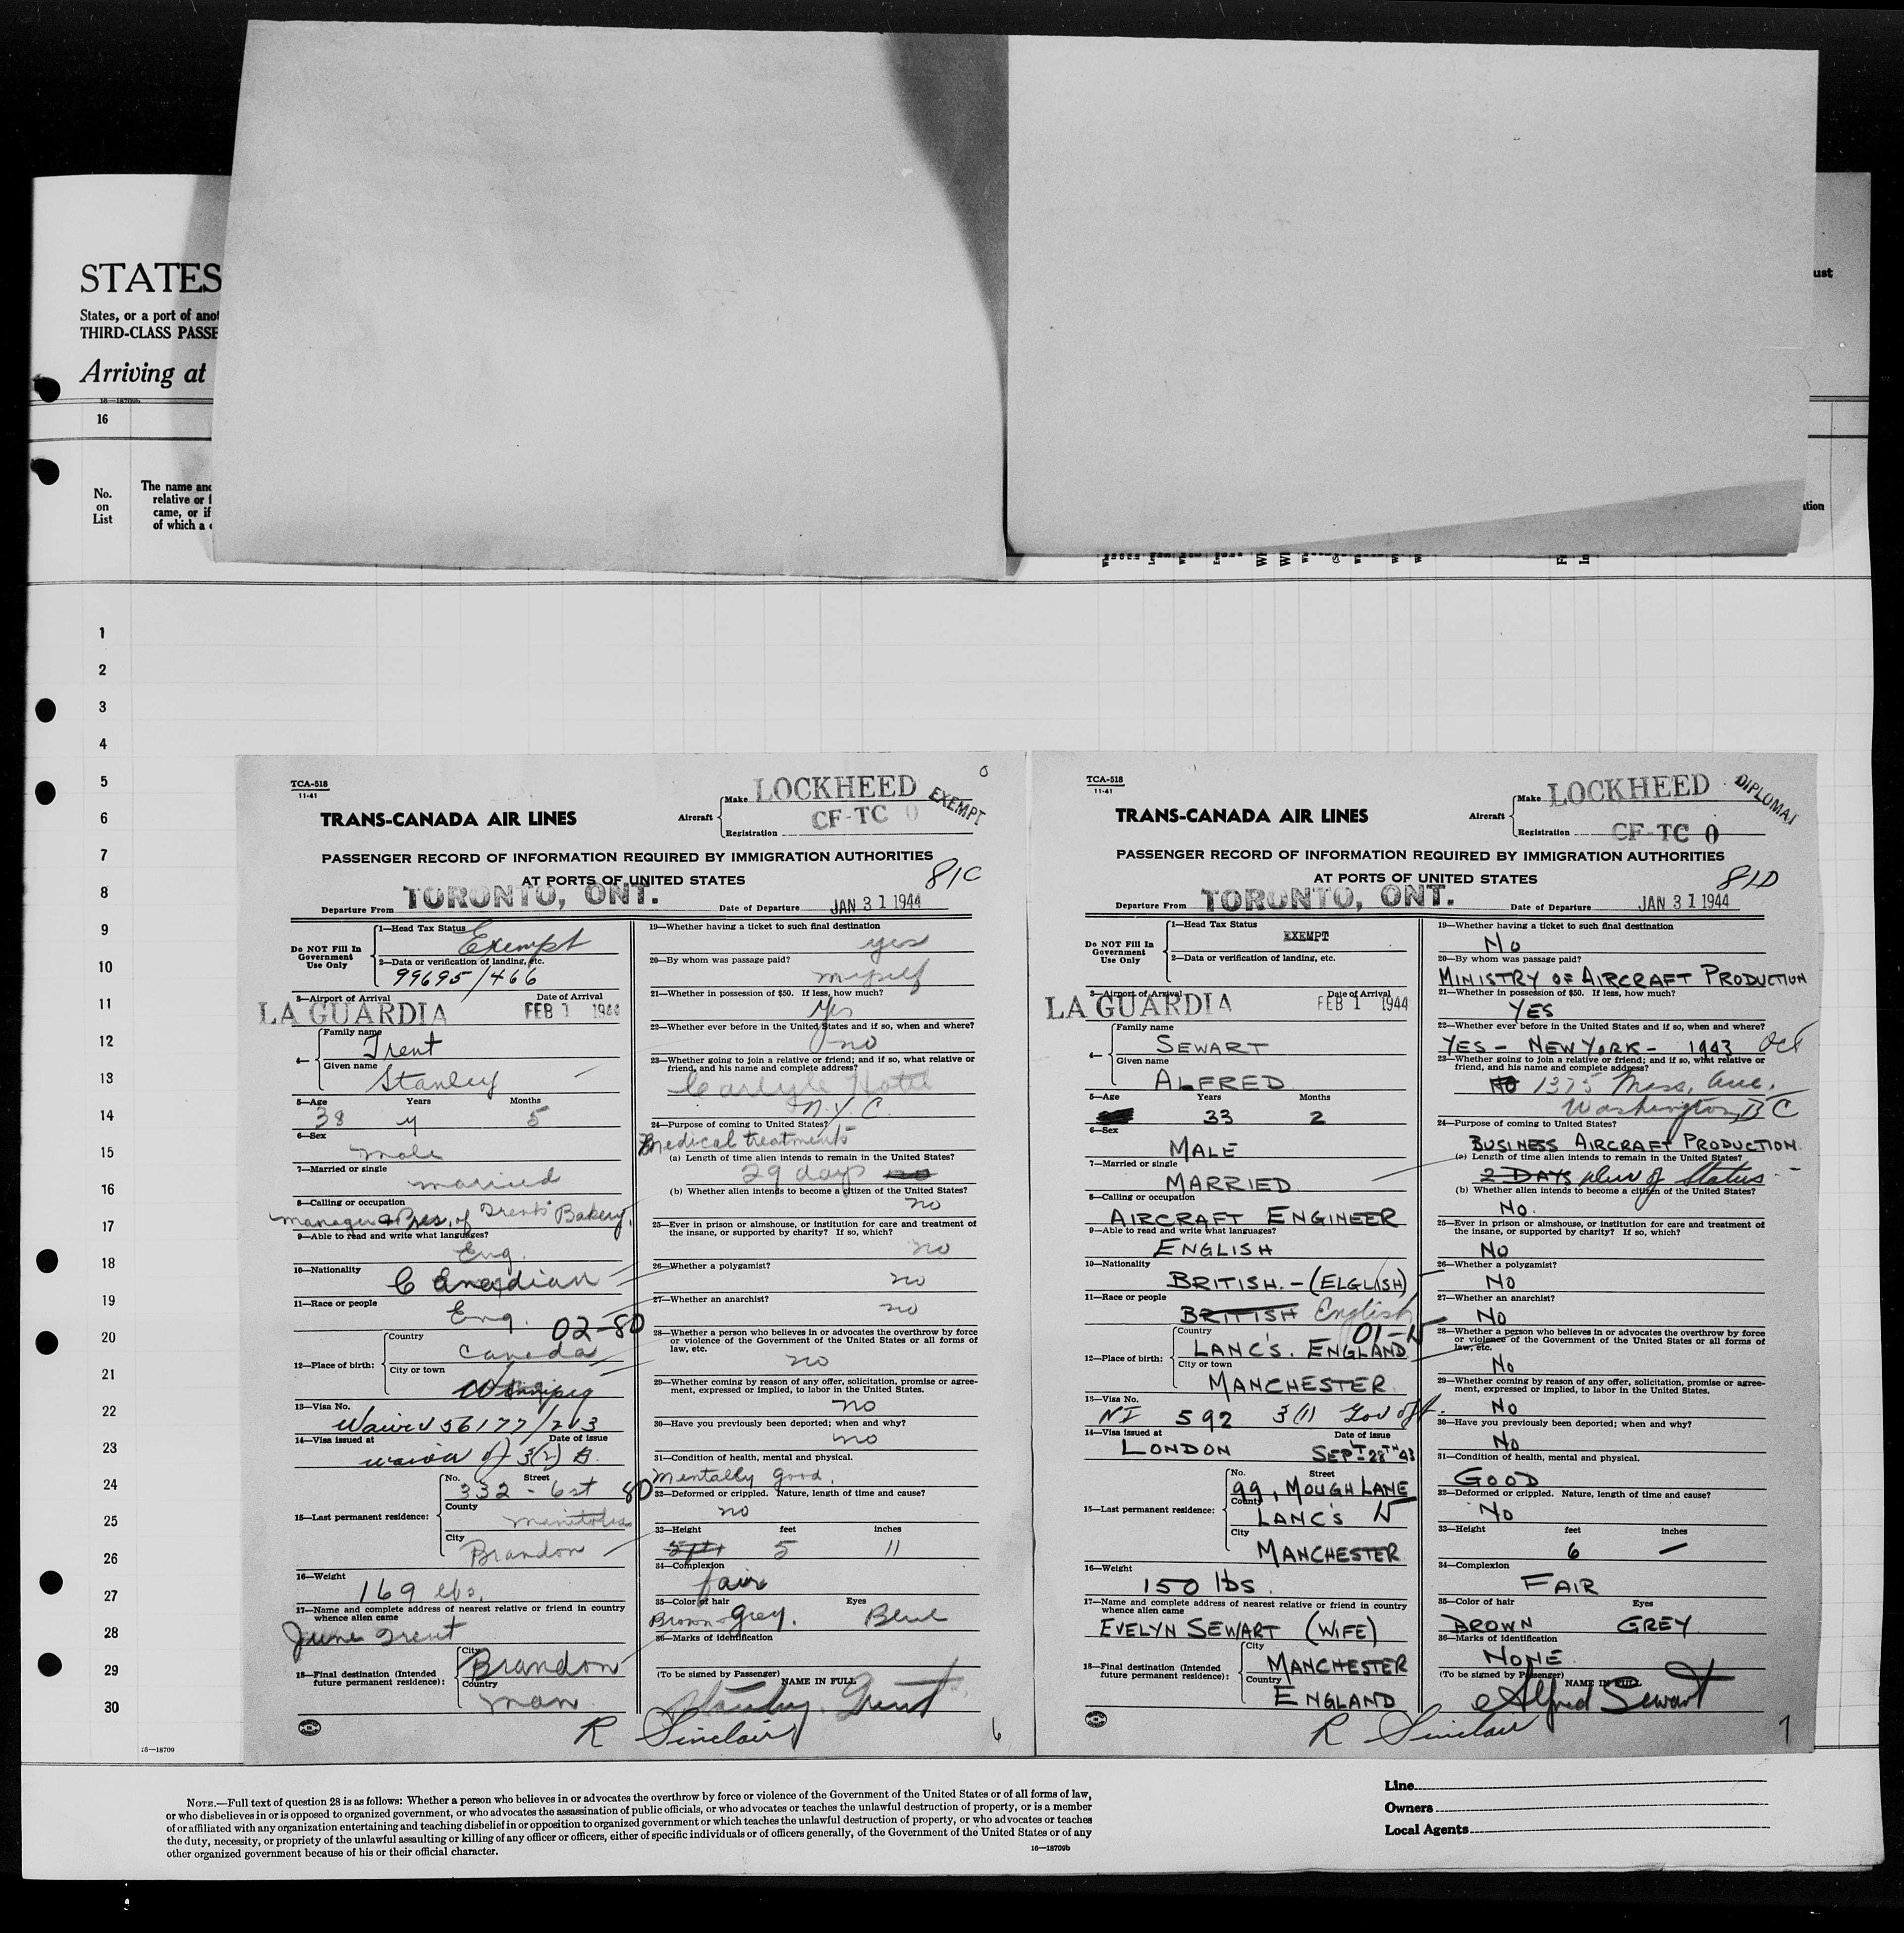 STATES
States, or a port of anot
THIRD-CLASS PASSE
Arriving at
16—18709b
16
No.
on
List
The name and
relative or f
came, or if
of which a c
ust
tion
1
2
3
4
5
6
7
8
9
10
11
12
13
14
15
16
17
18
19
20
21
22
23
24
25
26
27
28
29
30
16—18709
TCA-518
11-41
TRANS-CANADA AIR LINES
Aircraft
Make LOCKHEED
Registration CF-TC O
EXEMPT
PASSENGER RECORD OF INFORMATION REQUIRED BY IMMIGRATION AUTHORITIES
AT PORTS OF UNITED STATES
81C
Departure From TORONTO, ONT.
Date of Departure JAN 31 1944
Do NOT Fill In
Government
Use Only
1—Head Tax Status Exempt
2—Data or verification of landing, etc.
99695/466
3—Airport of Arrival
Date of Arrival
LA GUARDIA
FEB 1 1944
4—
Family name
Trent
Given name
Stanley
5—Age Years Months
38 y 5
6—Sex
male
7—Married or single
married
8—Calling or occupation
manager & Pres. of Trents Bakery
9—Able to read and write what languages?
Eng.
10—Nationality
Canadian
11—Race or people
Eng.
02-80
12—Place of birth:
Country
Canada
City or town
Winnipeg
13—Visa No.
Waived 56177/213
14—Visa issued at Date of issue
waiver of 3(2) B.
15—Last permanent residence:
No. Street
332 - 6st
80
County
Manitoba
City
Brandon
16—Weight
169 lbs.
17—Name and complete address of nearest relative or friend in country
whence alien came
June Trent
18—Final destination (Intended
future permanent residence):
City
Brandon
Country
Man
19—Whether having a ticket to such final destination
yes
20—By whom was passage paid?
myself
21—Whether in possession of $50. If less, how much?
Yes
22—Whether ever before in the United States and if so, when and where?
no
23—Whether going to join a relative or friend; and if so, what relative or
friend, and his name and complete address?
Carlyle Hotel
N.Y.C.
24—Purpose of coming to United States?
Medical treatments
(a) Length of time alien intends to remain in the United States?
29 days no
(b) Whether alien intends to become a citizen of the United States?
no
25—Ever in prison or almshouse, or institution for care and treatment of
the insane, or supported by charity? If so, which?
no
26—Whether a polygamist?
no
27—Whether an anarchist?
no
28—Whether a person who believes in or advocates the overthrow by force
or violence of the Government of the United States or all forms of
law, etc.
no
29—Whether coming by reason of any offer, solicitation, promise or agree-
ment, expressed or implied, to labor in the United States.
no
30—Have you previously been deported; when and why?
no
31—Condition of health, mental and physical.
Mentally Good.
32—Deformed or crippled. Nature, length of time and cause?
no
33—Height feet inches
5 11
34—Complexion
fair
35—Color of hair Eyes
Brown & Grey. Blue
36—Marks of identification
(To be signed by Passenger)
NAME IN FULL
Stanley Trent
R Sinclair
6
TCA-518
11-41
TRANS-CANADA AIR LINES
Aircraft
Make LOCKHEED
Registration CF-TC O
DIPLOMAT
PASSENGER RECORD OF INFORMATION REQUIRED BY IMMIGRATION AUTHORITIES
AT PORTS OF UNITED STATES
81D
Departure From TORONTO, ONT.
Date of Departure JAN 31 1944
Do NOT Fill In
Government
Use Only
1—Head Tax Status
EXEMPT
2—Data or verification of landing, etc.
3—Airport of Arrival
Date of Arrival
LA GUARDIA
FEB 1 1944
4—
Family name
SEWART
Given name
ALFRED
5—Age Years Months
33 2
6—Sex
MALE
7—Married or single
MARRIED
8—Calling or occupation
AIRCRAFT ENGINEER
9—Able to read and write what languages?
ENGLISH
10—Nationality
BRITISH. - (ELGLISH)
11—Race or people
BRITISH English
01-15
12—Place of birth:
Country
LANC'S. ENGLAND
City or town
MANCHESTER
13—Visa No.
NI 592 3(1) Gov off.
14—Visa issued at Date of issue
LONDON SEPT 28TH 43
15—Last permanent residence:
No. Street
99, MOUGH LANE
County
LANC'S 15
City
MANCHESTER
16—Weight
150 lbs.
17—Name and complete address of nearest relative or friend in country
whence alien came
EVELYN SEWART (WIFE)
18—Final destination (Intended
future permanent residence):
City
MANCHESTER
Country
ENGLAND
19—Whether having a ticket to such final destination
No
20—By whom was passage paid?
MINISTRY OF AIRCRAFT PRODUCTION
21—Whether in possession of $50. If less, how much?
YES
22—Whether ever before in the United States and if so, when and where?
YES - NEW YORK - 1943 Oct
23—Whether going to join a relative or friend; and if so, what relative or
friend, and his name and complete address?
NO 1375 Mass. Ave.
Washington, DC
24—Purpose of coming to United States?
BUSINESS AIRCRAFT PRODUCTION.
(a) Length of time alien intends to remain in the United States?
2 DAYS plus of Status
(b) Whether alien intends to become a citizen of the United States?
No.
25—Ever in prison or almshouse, or institution for care and treatment of
the insane, or supported by charity? If so, which?
No
26—Whether a polygamist?
No
27—Whether an anarchist?
No
28—Whether a person who believes in or advocates the overthrow by force
or violence of the Government of the United States or all forms of
law, etc.
No
29—Whether coming by reason of any offer, solicitation, promise or agree-
ment, expressed or implied, to labor in the United States.
No
30—Have you previously been deported; when and why?
No
31—Condition of health, mental and physical.
GOOD
32—Deformed or crippled. Nature, length of time and cause?
No
33—Height feet inches
6 —
34—Complexion
FAIR
35—Color of hair Eyes
BROWN GREY
36—Marks of identification
NONE
(To be signed by Passenger)
NAME IN FULL
Alfred Sewart
R Sinclair
7
NOTE.—Full text of question 28 is as follows: Whether a person who believes in or advocates the overthrow by force or violence of the Government of the United States or of all forms of law,
or who disbelieves in or is opposed to organized government, or who advocates the assassination of public officials, or who advocates or teaches the unlawful destruction of property, or is a member
of or affiliated with any organization entertaining and teaching disbelief in or opposition to organized government or which teaches the unlawful destruction of property, or who advocates or teaches
the duty, necessity, or propriety of the unlawful assaulting or killing of any officer or officers, either of specific individuals or of officers generally, of the Government of the United States or of any
other organized government because of his or their official character.
16—18709b
Line
Owners
Local Agents